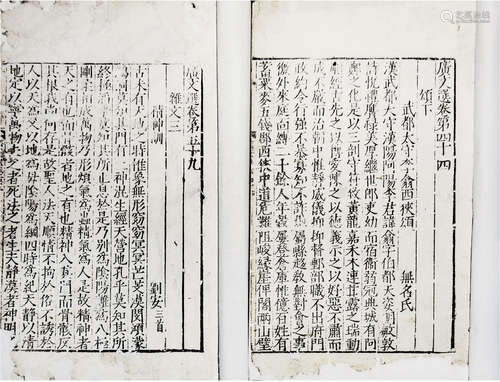 廣文選卷第四十四
頌下
武都太守李翕西狹頌
無名氏
漢武都太守漢陽阿陽李君諱翕字伯都天姿明敏敦
詩悅禮膺祿美厚繼世郎吏幼而宿衛弱冠典城有阿
鄭之化是以三剖符守致黃龍嘉禾木連甘露之瑞動
順經古先之以博愛陳之以德義示之以好惡不肅而
成不嚴而治朝中惟靜威儀抑抑督郵部職不出府門
政約令行強不暴寡知不詐愚屬縣趨教無對會之事
徼外來庭面縛二千餘人年穀屢登倉庾惟億百姓有
蓄粟麥五錢郡西狹中道危難阻峻緣崖俾閣兩山壁
廣文選卷第五十九
雜文三
精神訓
劉安三首
古未有天地之時惟象無形窈窈冥冥芒芠漠閔澒濛
鴻洞莫知其門有二神混生經天營地孔乎莫知其所
終極滔乎莫知其所止息於是乃別為陰陽離為八極
剛柔相成萬物乃形煩氣為蟲精氣為人是故精神者
天之有也而骨骸者地之有也精神入其門而骨骸反
其根我尚何存是故聖人法天順情不拘於俗不誘於
人以天為父以地為母陰陽為綱四時為紀天靜以清
地定以寧萬物失之者死法之者生夫靜漠者神明